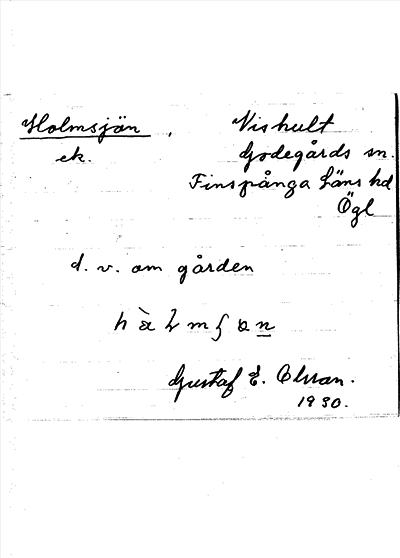 Holmsjön, Vishult
ek. Godegårds sn.
Finspånga Läns hd
Ögl
d. v. om gården
Gustaf E. Olsson.
1930.